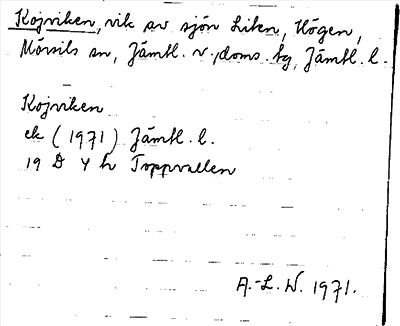 Kojviken, vik av sjön Liten, Högen,
Mörsils sn, Jämtl. v. doms. tg, Jämtl. l.
Kojviken
ek (1971) Jämtl. l.
19 D 4 h Toppvallen
A.-L. W. 1971.